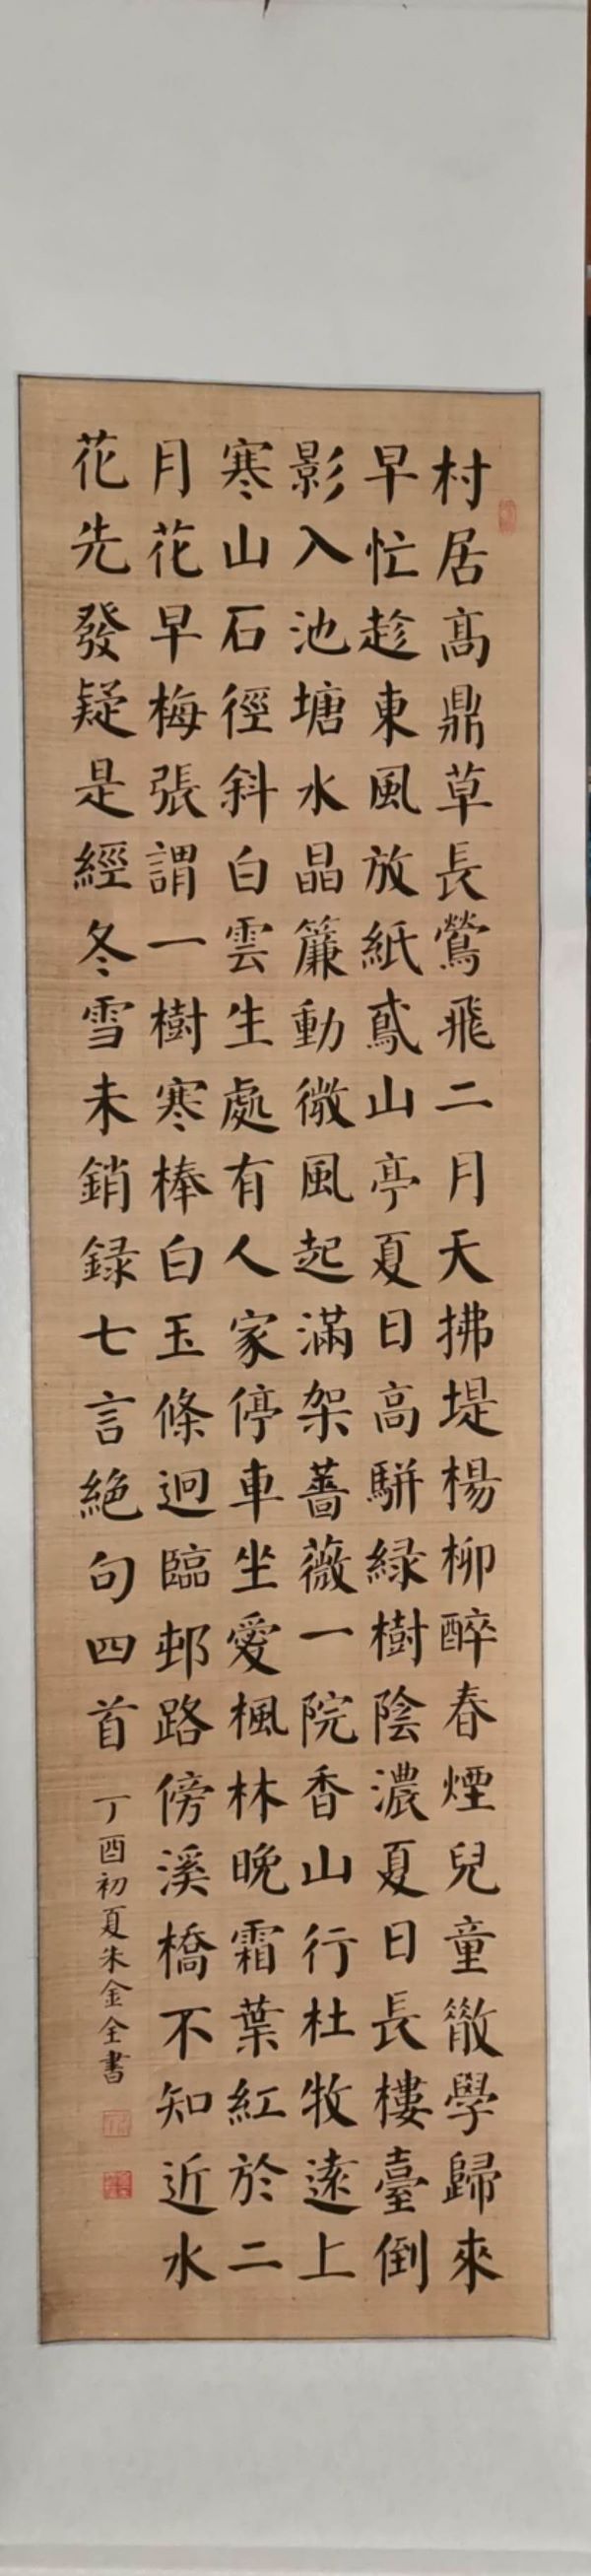 村居高鼎草長鶯飛二月天拂堤楊柳醉春煙兒童散學歸來
早忙趁東風放紙鳶山亭夏日高駢綠樹陰濃夏日長樓臺倒
影入池塘水晶簾動微風起滿架薔薇一院香山行杜牧遠上
寒山石徑斜白雲生處有人家停車坐愛楓林晚霜葉紅於二
月花早梅張謂一樹寒棒白玉條迥臨邨路傍溪橋不知近水
花先發疑是經冬雪未銷錄七言絕句四首
丁酉初夏朱金全書